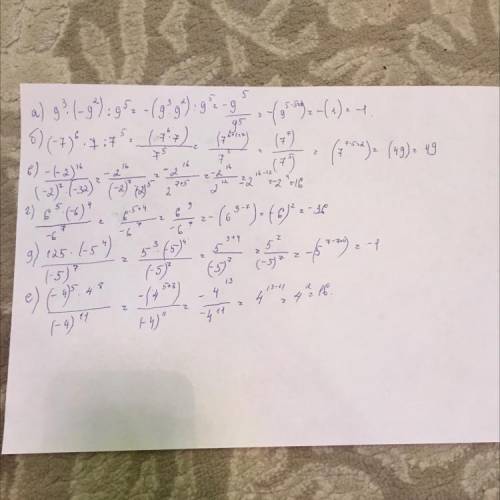 а) 9³·(-9²):9⁵=-(9³·9²):9⁵=-9⁵/9⁵=-(9⁵⁻⁵⁼⁰)=-(1)=-1.
б) (-7)⁶·7:7⁵=(7⁶·7)/7⁵=(7⁶⁺¹⁼⁷)/7⁵=(7⁷)/(7⁵)=(7⁷⁻⁵⁼²)=(49)=49
в) -(-2)¹⁶/(-2)⁷·(-32)=-2¹⁶/(-2)⁷·(2)⁵=-2¹⁶/2⁷⁺⁵=-2¹⁶/2¹²=2¹⁶⁻¹²=-2⁴=16
г) 6⁵·(-6)⁴/-6⁷=6⁵⁺⁴/-6⁷=6⁹/-6⁷=-(6⁹⁻⁷)=(6)²=-36
д) 125·(-5⁴)/(-5)⁷=5³·(5)⁴/(-5)⁷=5³⁺⁴/(-5)⁷=5⁷/(-5)⁷=-(5⁷⁻⁷⁼⁰)=-1
е) (-4)⁵·4⁸/(-4)¹¹=-(4⁵⁺⁸)/(-4)¹¹=-4¹³/-4¹¹=4¹³⁻¹¹=4²=16.